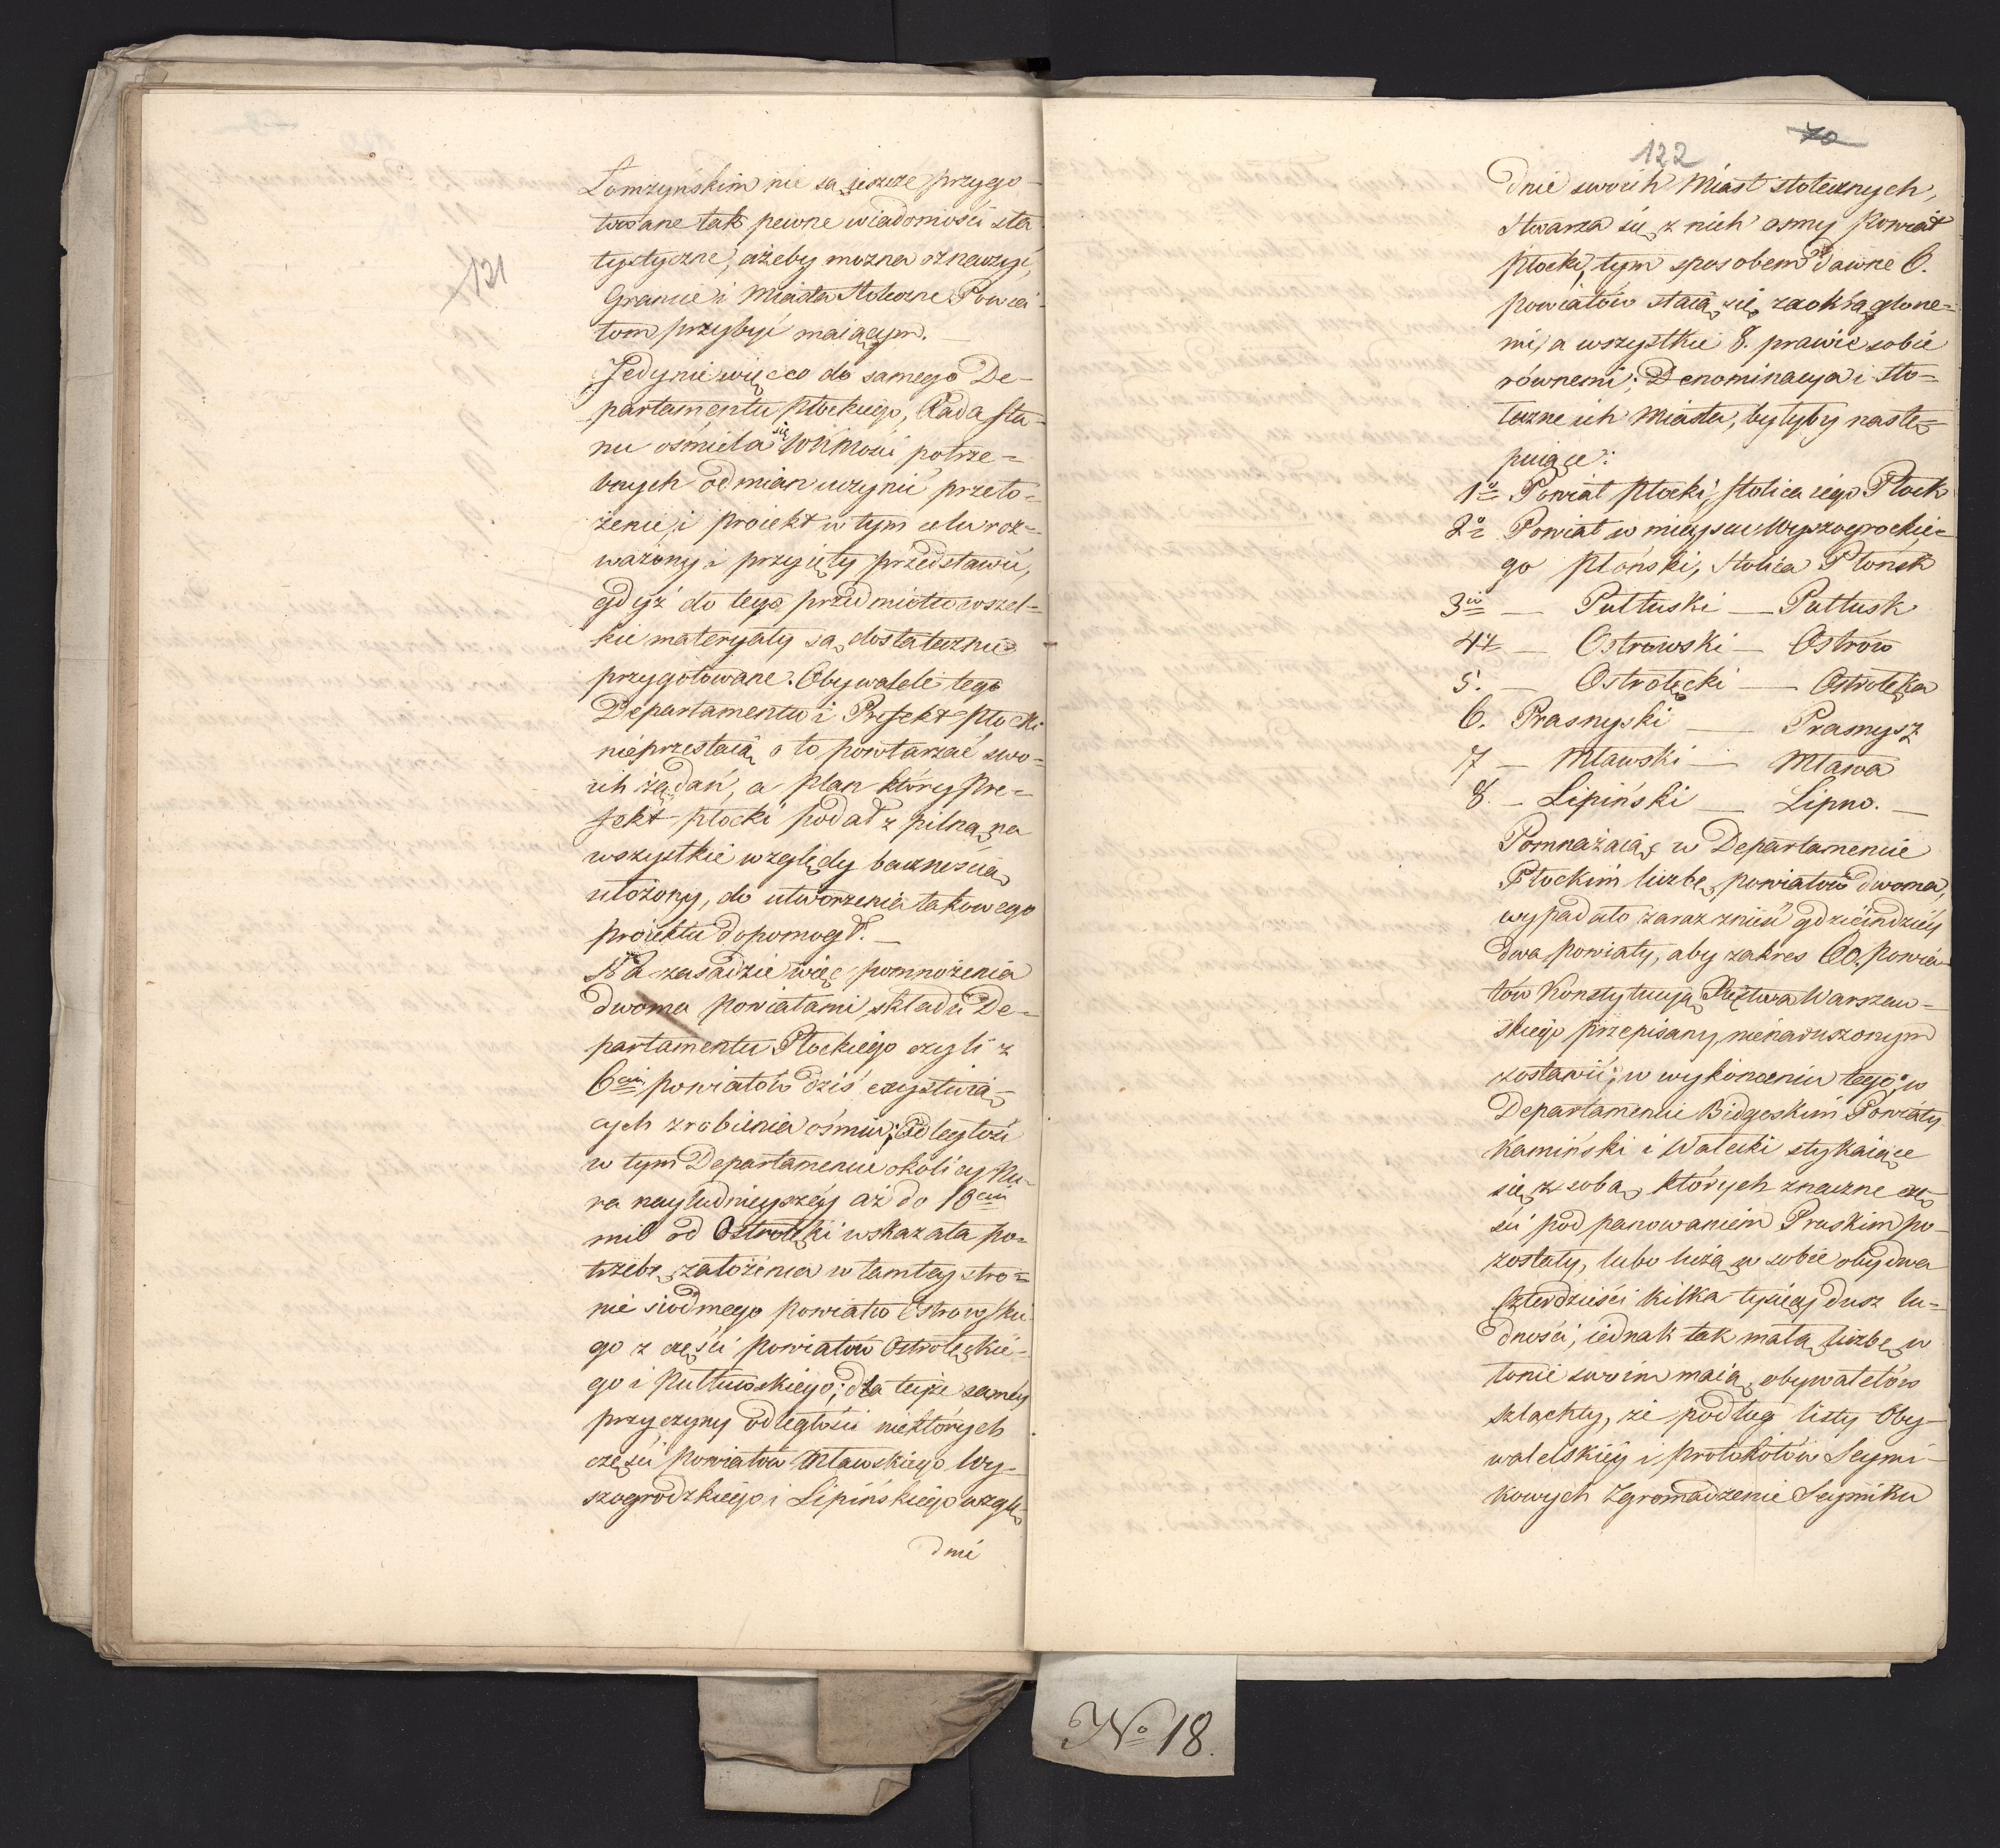 121
Łomżyńskim nie są ieszcze przygo-
towane tak pewne wiadomości sta
tystyczne, ażeby można oznaczyć,
Granice i Miasta Stołeczne Powia-
tom przybyć maiącym. —
Jedynie więc co do samego De-
partamentu Płockiego, Rada Sta-
nu ośmiela się WKMości potrze=
bnych odmian uczynić przeło-
żenie, i proiekt w tym celu roz=
ważony i przyięty przedstawić,
gdyż do tego przedmiotu wszel-
kie materyały są dostatecznie
przygotowane. Obywatele tego
Departamentu i Prefekt Płocki
nieprzestaią o to powtarzać swo=
ich żądań, a plan który Pre=
fekt płocki podał z pilną na
wszystkie względy bacznością
ułożony, do utworzenia takowego
proiektu dopomogł. —
Na zasadzie więc pomnożenia
dwoma powiatami składu De=
partamentu Płockiego czyli z
6ciu powiatów dziś exystuią-
cych zrobienia ośmiu; odległość
w tym Departamencie okolicy Nu-
ra nayludnieyszéy aż do 10ciu
mil od Ostrołęki wskazała po=
trzebę założenia w tamtey stro=
nie siodmego powiatu Ostrowskie
go z części powiatów Ostrołęckie-
go i Pułtuskiego; dla teyże saméy
przyczyny odległości niektórych
części Powiatów Mławskiego Wy-
szogrodzkiego i Lipińskiego wzglę
dnie
70
122
dnie swoich Miast stołecznych,
stwarza się z nich osmy Powiat
płocki, tym sposobem dawne 6.
powiatów staią się zaokrąglone=
mi, a wszystkie 8. prawie sobie
równemi; Denominacya i sto=
łeczne ich Miasta, byłyby nastę=
puiące:
1o Powiat płocki, stolica iego Płock
2o Powiat w mieyscu Wyszogrockie=
go Płoński, stolica Płońsk
3io — Pułtuski — Pułtusk
4to — Ostrowski — Ostrów
5. — Ostrołęcki — Ostrołęka
6. Prasnyski — Prasnysz
7 — Mławski — Mława
8. — Lipiński — Lipno. —
Pomnażaiąc w Departamencie
Płockim liczbę powiatów dwoma,
wypadało zaraz znieść gdzieindziéy
dwa powiaty, aby zakres 60. powia-
tów Konstytucyą Xięstwa Warszaw=
skiego przepisany, nienaruszonym
zostawić; w wykonaniu tego, w
Departamencie Bidgoskim Powiaty
Kamiński i Wałecki stykaiące
się z sobą, których znaczne czę
ści pod panowaniem Pruskim po-
zostały, lubo liczą w sobie obydwa
czterdzieści kilka tysięcy dusz lu=
dności, iednak tak małą liczbę w
łonie swoim maią, obywatelów
szlachty, że podług listy Oby-
watelskiéy i protokółów Seymi-
kowych Zgromadzenie Seymiku
No 18.